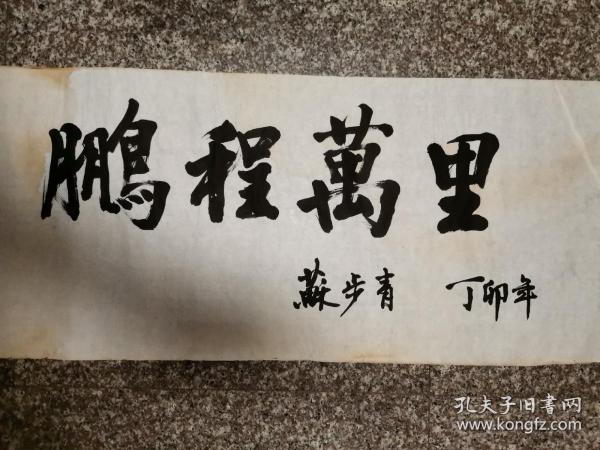 鹏程萬里
蘇步青 丁卯年
孔夫子旧书网
www.kongfz.com